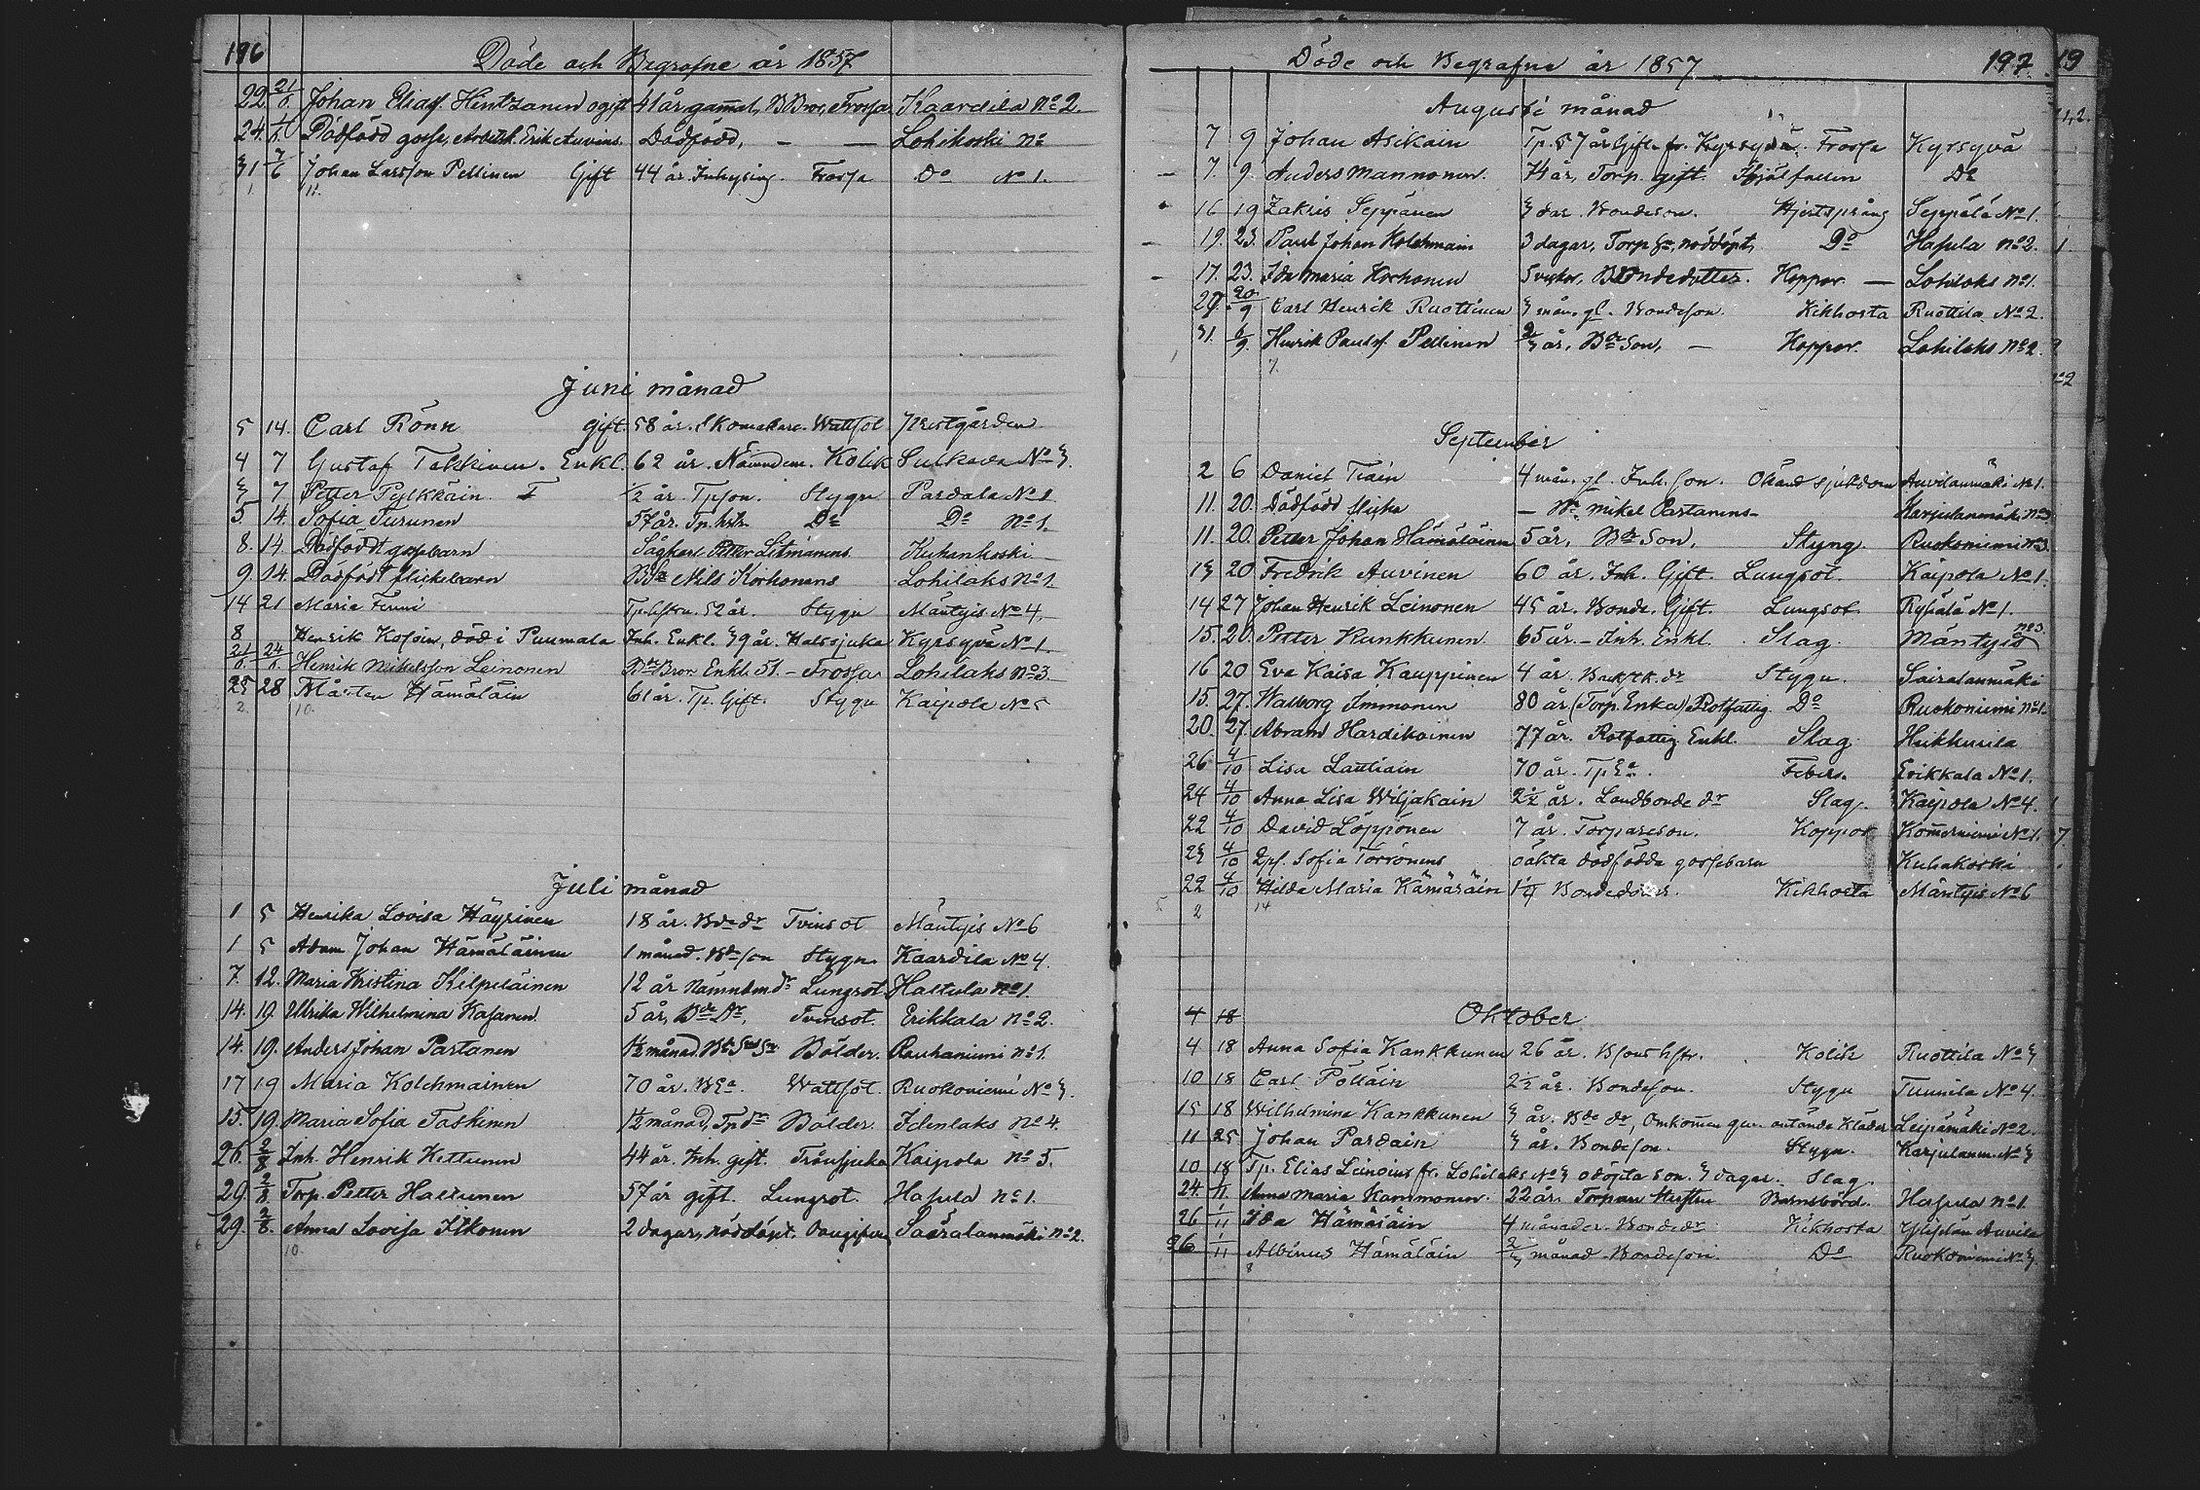 196
Döde och Begrafne år 1857
22. 21/6. Johan Eliass. Hintzanen ogift 41 år gammal, BBror, Frossa. Kaardila No 2.
24. Dödfödd gosse, Arbetsk. Erik Auvinens. Dödfödd, — — Lohikoski No
31 7/6 Johan Larsson Pellinen Gift 44 år. Inhysing. Frossa Do No 1.
11.
Juni månad
5 14. Carl Rönn gift. 58 år. Skomakare. Wattsot Prestgården
4 7 Gustaf Takkinen. Enkl. 62 år. Nämndem. Kolik Sulkava No 3.
3 7 Petter Pylkkäin 1/2 år Tpson. Stygn Pardala No 1
5 14. Sofia Turunen 57 år. Tp. hstr. Do Do No 1.
8. 14. Dödfödt gossebarn Sågkarl Petter Litmanens Kuhankoski
9. 14. Dödfödt flickebarn Nils Korhonens Lohilaks No 1.
14 21 Maria Finni 52 år. Stygn Mäntyis No 4.
8 Henrik Kosoin, död i Puumala Inh. Enkl. 39 år. Halssjuka Kyrsyvä No 1.
21/6. 24/6. Henrik Mikelsson Leinonen Bror Enkl. 51. – Frossa Lohilaks No 3.
25 28 Mårten Hämäläin 61 år. Tp. Gift. Stygn Kaipola No 5
2. 10.
Juli månad
1 5 Henrika Lovisa Häyrinen 18 år. Bde dr Tvinsot Mäntyis No 6
1 5 Adam Johan Hämäläinen 1 månad. Bdeson Stygn. Kaardila No 4.
7. 12. Maria Kristina Kilpeläinen 12 år Nämndem. dr Lungsot Haltula No 1.
14. 19. Ulrika Wilhelmina Kasanen. 5 år, Bde Dr, Tvinsot. Erikkala No 2.
14. 19. Anders Johan Partanen 1 1/2 månad. Bölder. Rauhaniemi No 1.
17 19 Maria Kolehmainen 70 år. BEa. Wattsot. Ruokoniemi No 3.
15. 19. Maria Sofia Taskinen 1 1/2 månad, Tp dr Bölder. Idenlaks No 4.
26. 2/8 Inh. Henrik Kettunen 44 år. Inh. gift. Trånsjuka Kaipola No 5.
29. 2/8 Torp. Petter Hallunen 57 år gift. Lungsot. Hasula No 1.
29. 2/8. Anna Lovisa Itkonen 2 dagar, nöddöpt. Saaralanmäki No 2.
10.
Döde och Begrafne år 1857
197
19
Augusti månad
7 9 Johan Asikain Tp. 57 år Gift. fr. Kyrsyvä. Frossa Kyrsyvä
7. 9. Anders Mannonen. 74 år, Torp. gift. Ihjälfallen Do
16 19 Zakris Seppänen 3 dar. Bondeson. Hjertsprång Seppälä No 1.
19. 23. Paul Johan Kolehmain 3 dagar, Torp Sn, nöddöpt, Do Hasula No 2.
17. 23. Ida Maria Korhonen 5 veckor, Bondedotter. Koppor — Lohilaks No 1.
27. 20/9 Carl Henrik Ruottinen 3 mån. gl. Bondeson. Kikhosta Ruottila No 2.
31. 6/9. Henrik Paulss. Pellinen 2/3 år, Bde Son, — Koppor. Lohilaks No 2.
7.
September
2 6 Daniel Tiain 4 mån. gl. Inh. son. Okänd sjukdom Auvilanmäki No 1.
11. 20. Dödfödd flicka — Mikel Partanens – Karjulanmäki No 3
11. 20. Petter Johan Hämäläinen 5 år, Bde Son, Styng. Ruokoniemi No 3.
13 20 Fredrik Auvinen 60 år. Inh. Gift. Lungsot. Kaipola No 1.
14 27 Johan Henrik Leinonen 45 år. Bonde. Gift. Lungsot. Rypälä No 1.
15. 20. Petter Kankkunen 65 år. – Inh. Enkl. Slag. Mäntyis No 3.
16 20 Eva Kaisa Kauppinen 4 år. dr Stygn. Sairalanmäki
15. 27. Walborg Immonen 80 år (Torp. Enka) Rotfattig. Do Ruokoniemi No 1.
20. 27. Abram Hardikainen 77 år. Rotfattig Enkl. Slag Heikkurila
26 4/10 Lisa Lautiain 70 år. Tp Ea. Feber. Erikkala No 1.
24 4/10 Anna Lisa Wiljakain 2 1/2 år. Landbonde dr Slag. Kaipola No 4.
22 4/10 David Loppönen 7 år. Torpareson. Koppor Kommerniemi No 1.
23 4/10 2 ps. Sofia Torrönens oäkta dödfödda gossebarn Kuhakoski
22 4/10 Hilda Maria Kämäräin Bondedotter. Kikhosta Mäntyis No 6
2 14
Oktober
4 18
4 18 Anna Sofia Kankkunen 26 år. Bsons hstr. Kolik Ruottila No 3
10 18 Carl Pölläin 2 1/2 år. Bondeson. Stygn Tuunila No 4.
15 18 Wilhelmina Kankkunen 3 år. Bde dr, Omkommen gm. antända kläder Leipämäki No 2.
11 25 Johan Pardain 3 år. Bondeson. Stygn. Karjulanm. No 3
10 18 Tp. Elias Leinoins fr. Lohilaks No 3 odöpta son. 3 dagar. Slag
24. 1/11 Anna Maria Kammonen. 22 år. Torpare Hustru Barnsbörd. Hasula No 1.
26 1/11 Ida Hämäräin 4 månader. Bondedr Kikhosta Auvila
26 1/11 Albinus Hämäläin 2/3 månad. Bondeson. Do Ruokoniemi No 3.
8